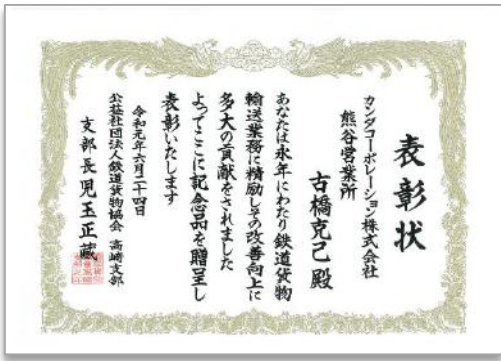 表彰状
カンダコーポレーション株式会社
熊谷営業所
古橋克己殿
あなたは永年にわたり鉄道貨物
輸送業務に精励しその改善向上に
多大の貢献をされました
よってここに記念品を贈呈し
表彰いたします
令和元年六月二十四日
公益社団法人鉄道貨物協会 高崎支部
支部長児玉正藏